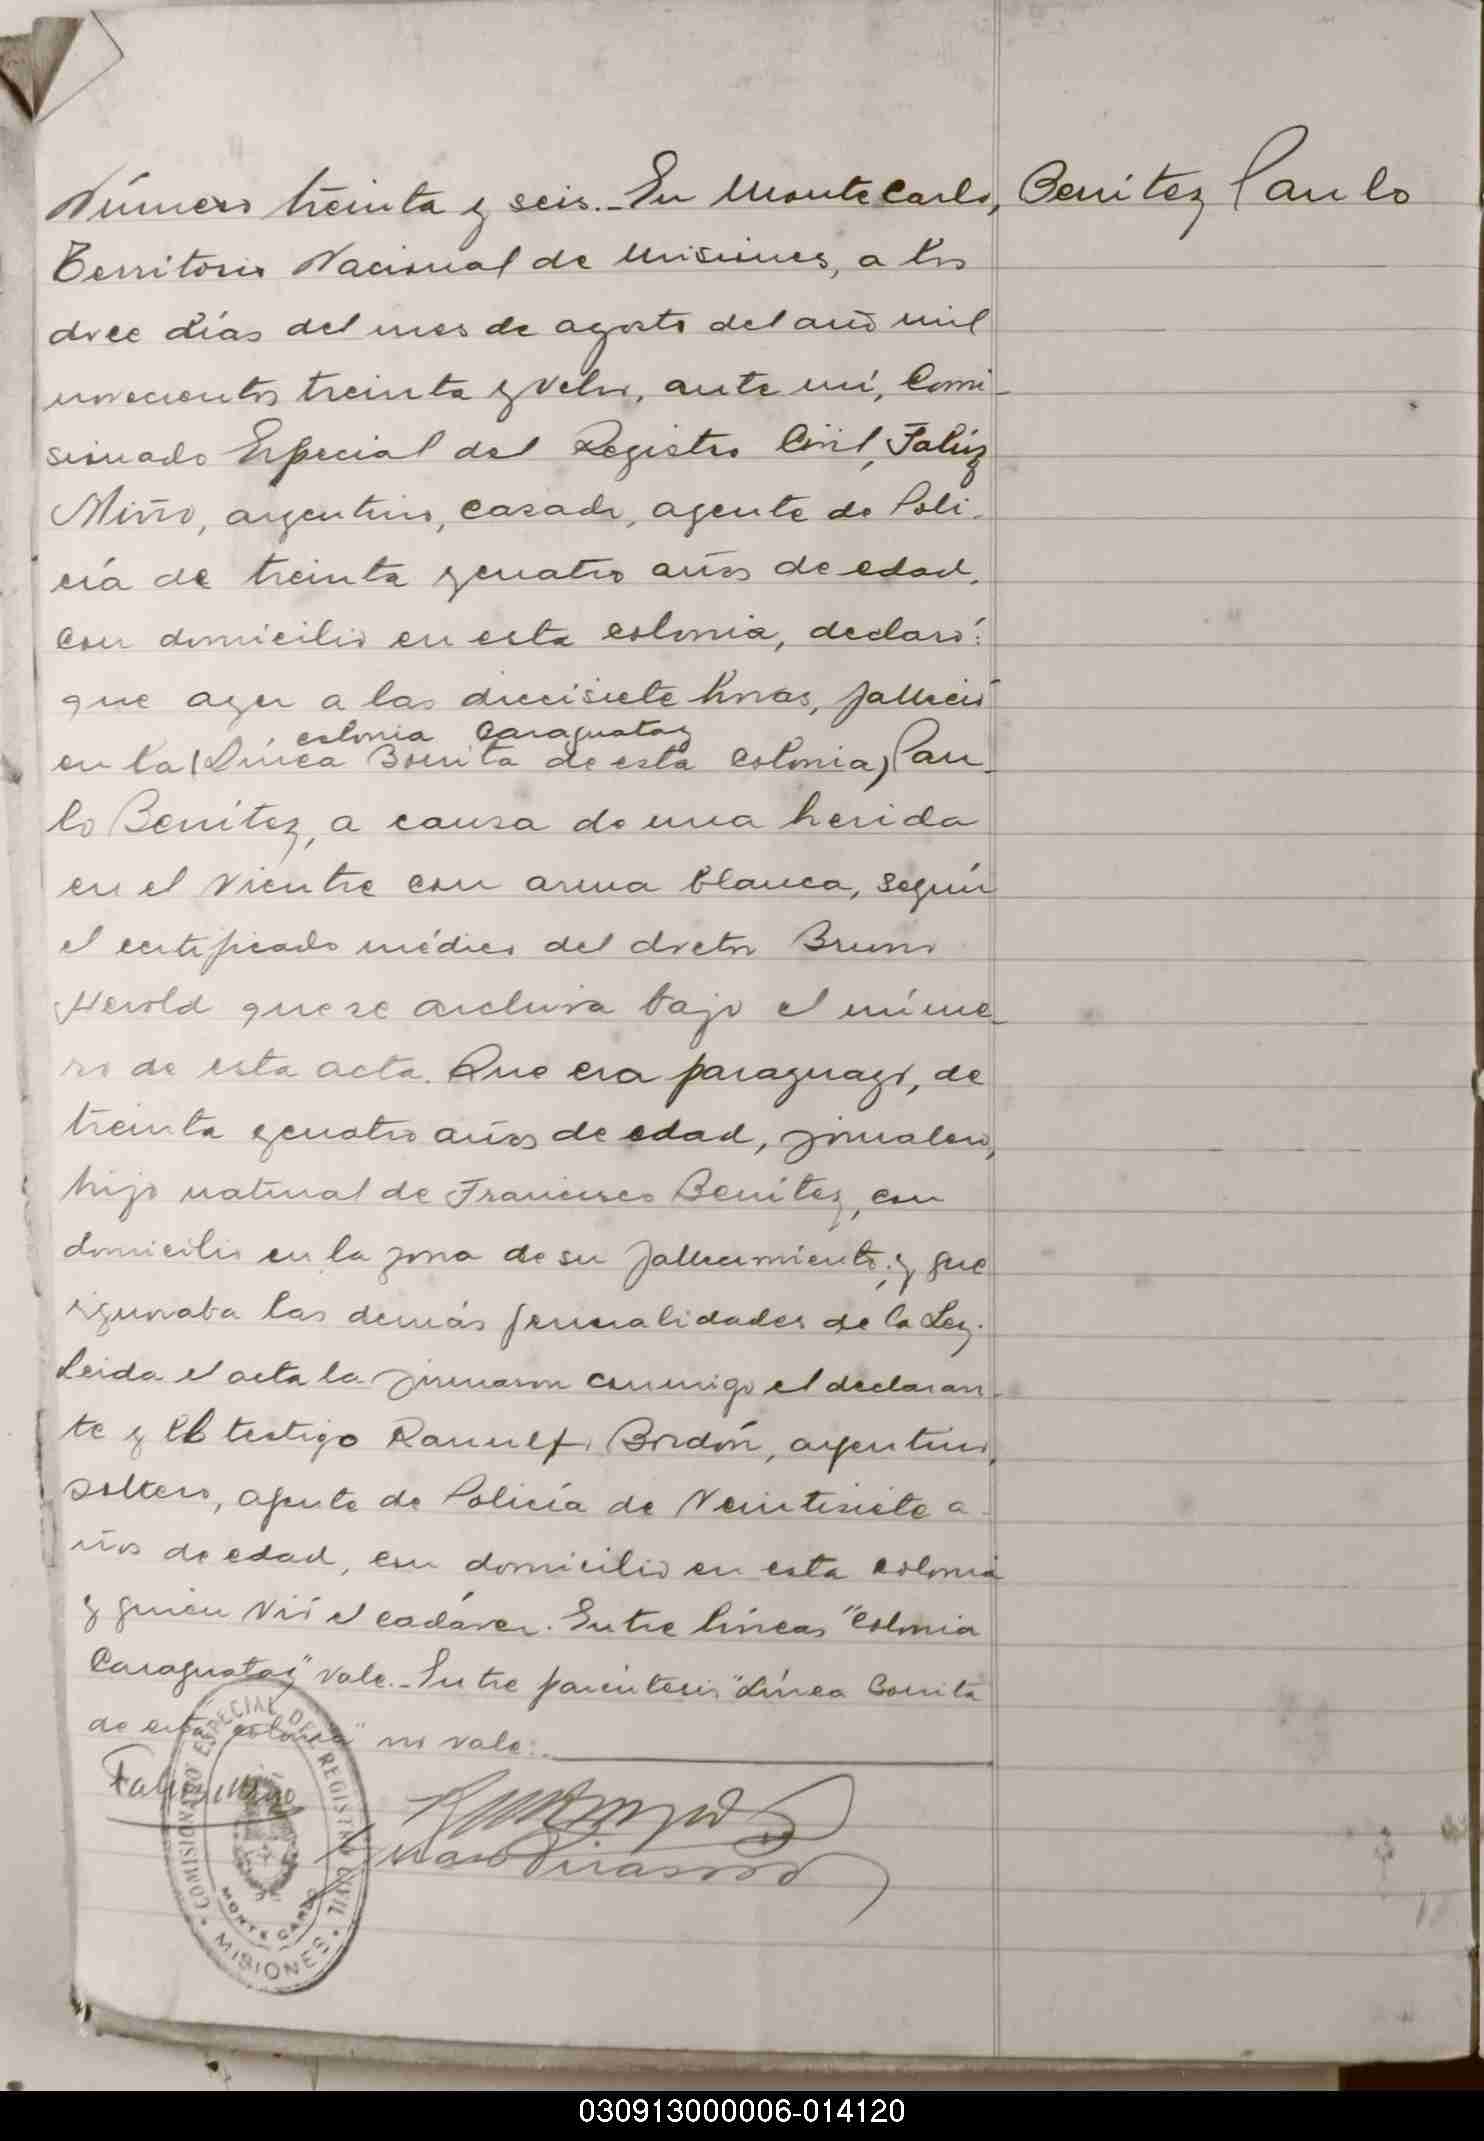 Benitez Paulo
Número treinta y seis._ En Monte Carlo,
Territorio Nacional de Misiones, a los
doce días del mes de agosto del año mil
novecientos treinta y ocho, ante mí, Comi-
sionado Especial del Registro Civil,
Miño, argentino, casado, agente de Poli-
cía de treinta y cuatro años de edad,
con domicilio en esta colonia, declaró:
que ayer a las diecisiete horas, falleció
colonia Caraguatay
en la (Línea Bonita de esta colonia) Pau-
lo Benítez, a causa de una herida
en el vientre con arma blanca, según
el certificado médico del doctor Bruno
Herold que se archiva bajo el núme-
ro de esta acta. Que era paraguayo, de
treinta y cuatro años de edad, jornalero,
hijo natural de Francisco Benítez, con
domicilio en la zona de su fallecimiento; y que
ignoraba las demás formalidades de la Ley.
Leida el acta la firmaron conmigo el declaran-
te y el testigo Ranulfo Bordón, argentino,
soltero, agente de Policía de veintisiete a-
ños de edad, con domicilio en esta colonia
y quien vió el cadáver. Entre líneas "colonia
Caraguatay" vale._ Entre paréntesis "Línea Bonita
de esta colonia" no vale:_
COMISIONADO ESPECIAL DEL REGISTRO CIVIL
MONTE CARLO
MISIONES
030913000006-014120